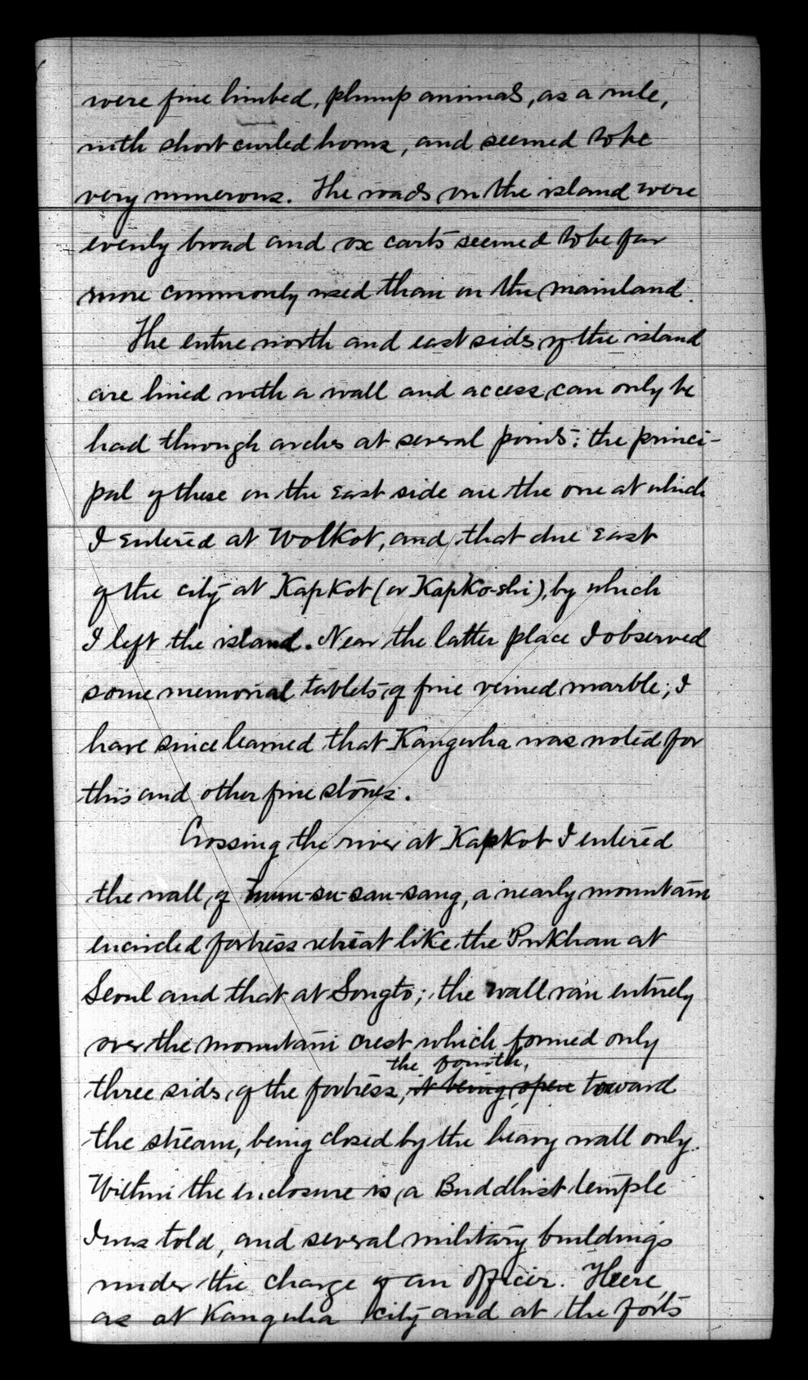 were fine limbed, plump animals, as a rule,
with short curled horns, and seemed to be
very numerous. The roads on the island were
evenly broad and ox carts seemed to be far
more commonly used than on the mainland.
The entire north and east sides of the island
are lined with a wall and access can only be
had through arches at several points: the princi-
pal of these on the East side are the one at which
I entered at Wolkot, and that due East
of the city at Kapkot (or Kapko-shi), by which
I left the island. Near the latter place I observed
some memorial tablets of fine veined marble; I
have since learned that Kangwha was noted for
this and other fine stones.
Crossing the river at Kapkot I entered
the wall of -su-san-sang, a nearly mountain
encircled fortress retreat like the Pukhan at
Seoul and that at Songto; the wall ran entirely
over the mountain crest which formed only
the fourth,
three sides of the fortress, it being open toward
the stream, being closed by the heavy wall only.
Within the enclosure is a Buddhist temple
I was told, and several military buildings
under the charge of an officer. Here
as at Kangwha city and at the forts